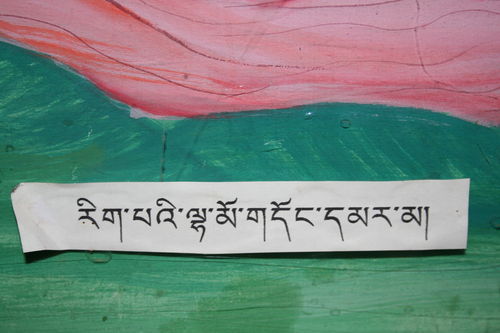 རིག་པའི་ལྷ་མོ་གདོང་དམར་མ།